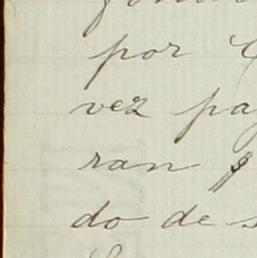 por
vez pa
ran
do de s